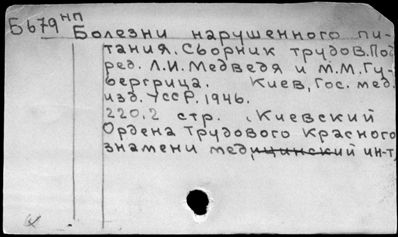 Б679нп
Болезни нарушенного пи-
тания. Сборник трудов. Под
ред. Л.И. Медведя и М.М. Гу-
бергрица. Киев, Гос. мед.
изд. УССР, 1946.
220,2 стр. (Киевский
Ордена Трудового Красного
знамени медицинский ин-т)